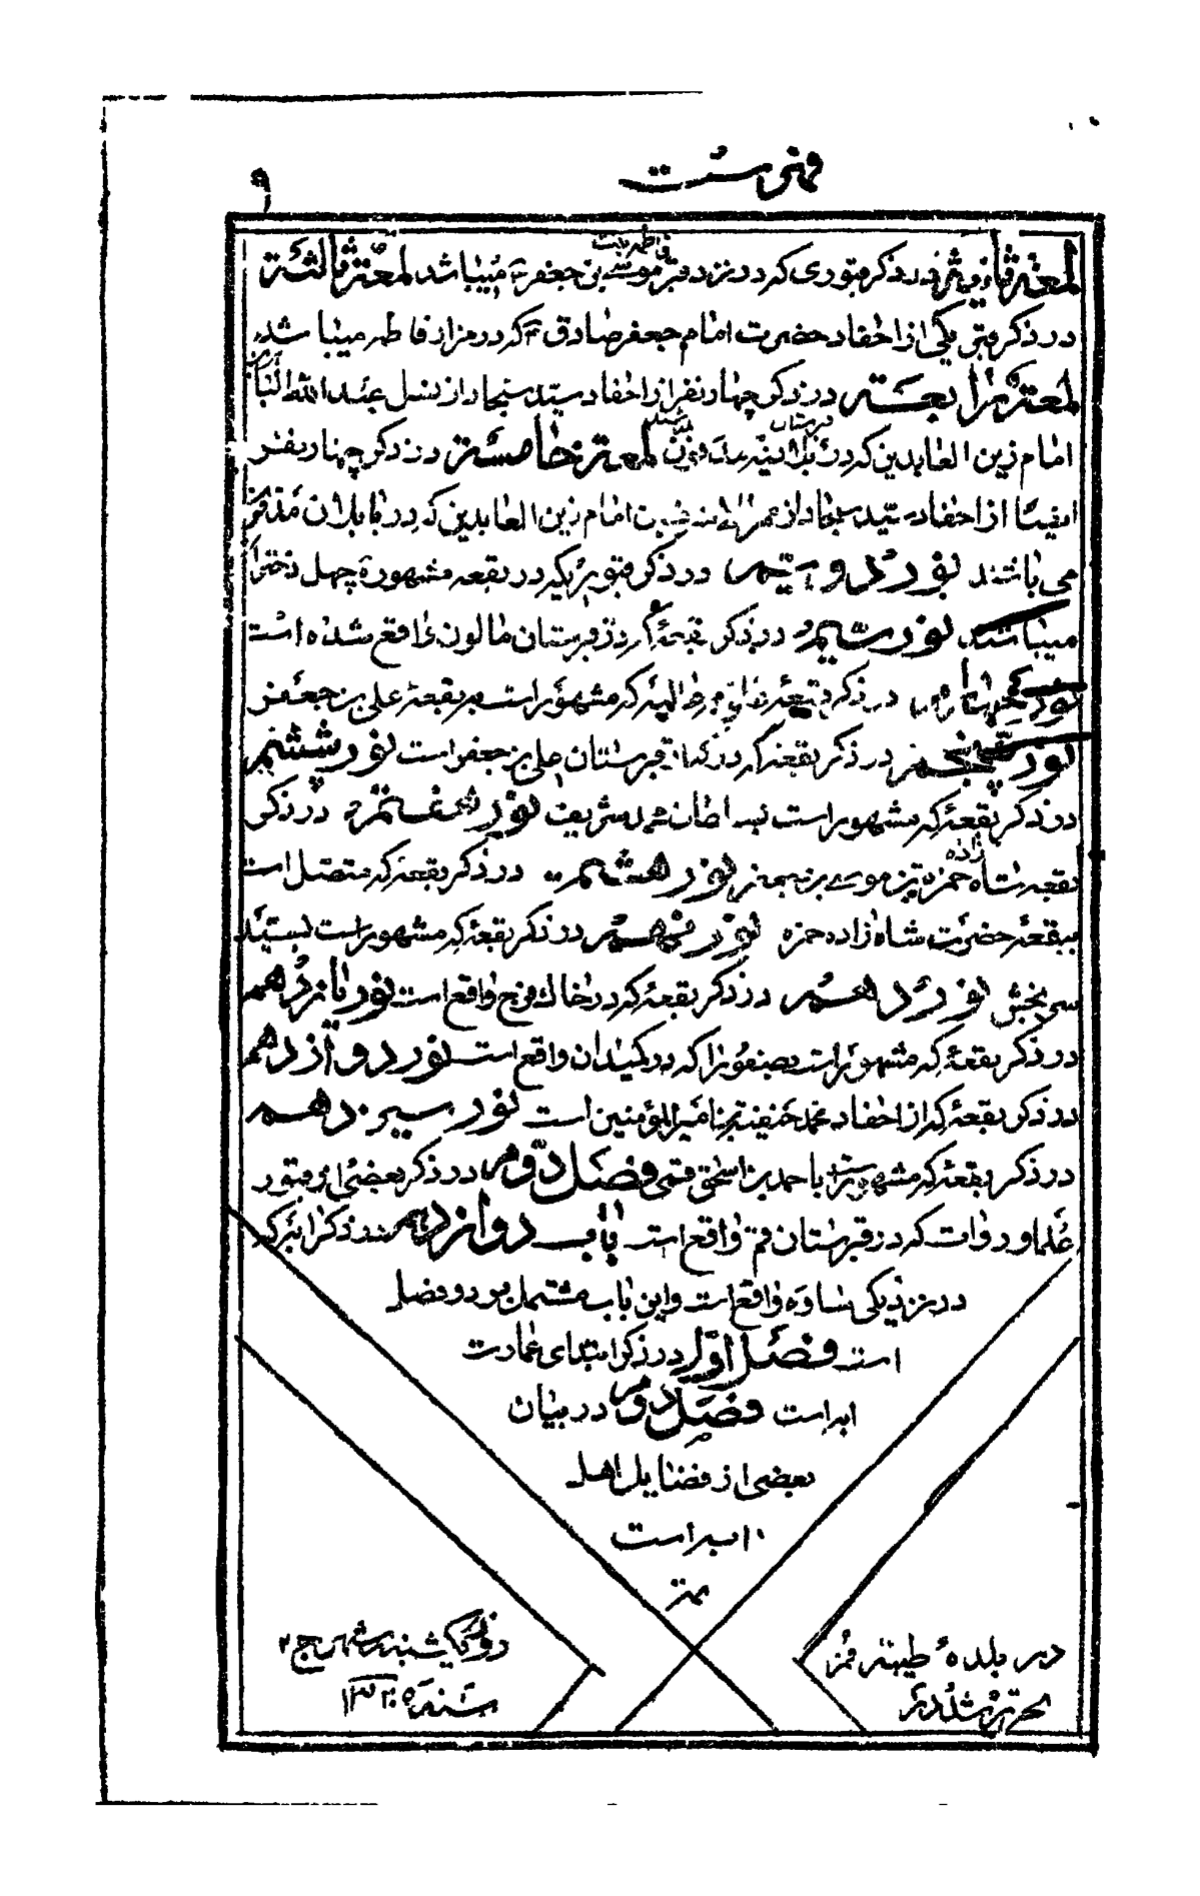 فهرست
۹
لمعه ثانویه در ذکر قبوری که در نزد قبر فاطمه بنت موسی بن جعفر ع میباشد لمعه ثالثه
در ذکر قبر یکی از احفاد حضرت امام جعفر صادق ع که در مزار فاطمه میباشد
لمعه رابعه در ذکر چهار نفر از احفاد سید سجاد از نسل عبدالله الباهر
امام زین العابدین که در قبرستان لمعه خامسه در ذکر چهار نفر
ایضا از احفاد سید سجاد از عمر بن امام زین العابدین که در بابلان مدفون
می باشند نور دویم در ذکر قبوریکه در بقعه مشهوره چهل دختران
میباشد نور سیم در ذکر بقعه که در قبرستان مالون واقع شده است
نور چهارم در ذکر بقعه که مشهور است بر بقعه علی بن جعفر
نور پنجم در ذکر بقعه که در قبرستان علی بن جعفر است نور ششم
در ذکر بقعه که مشهور است بسلطان محمد شریف نور هفتم در ذکر
بقعه شاه زاده حمزه بن موسی بن جعفر نور هشتم در ذکر بقعه که متصل است
ببقعه حضرت شاه زاده حمزه نور نهم در ذکر بقعه که مشهور است بسید
سر بخش نور دهم در ذکر بقعه که در خاک فرج واقع است نور یازدهم
در ذکر بقعه که مشهور است بصفورا که در کیدان واقع است نور دوازدهم
در ذکر بقعه که از احفاد محمد حنفیه بن امیر المؤمنین است نور سیزدهم
در ذکر بقعه که مشهور است با احمد بن اسحق قمی فصل دوم در ذکر بعضی از قبور
علما و روات که در قبرستان قم واقع است باب دوازدهم در ذکر ابه که
در نزدیکی ساوه واقع است و این باب مشتمل بر دو فصل
است فصل اول در ذکر ابتدای عمارت
ابه است فصل دوم در بیان
بعضی از فضایل اهل
ابه است
تمت
در بلده طیبه قم
تحریر شد در
روز یکشنبه شهر ج ۲
سنه